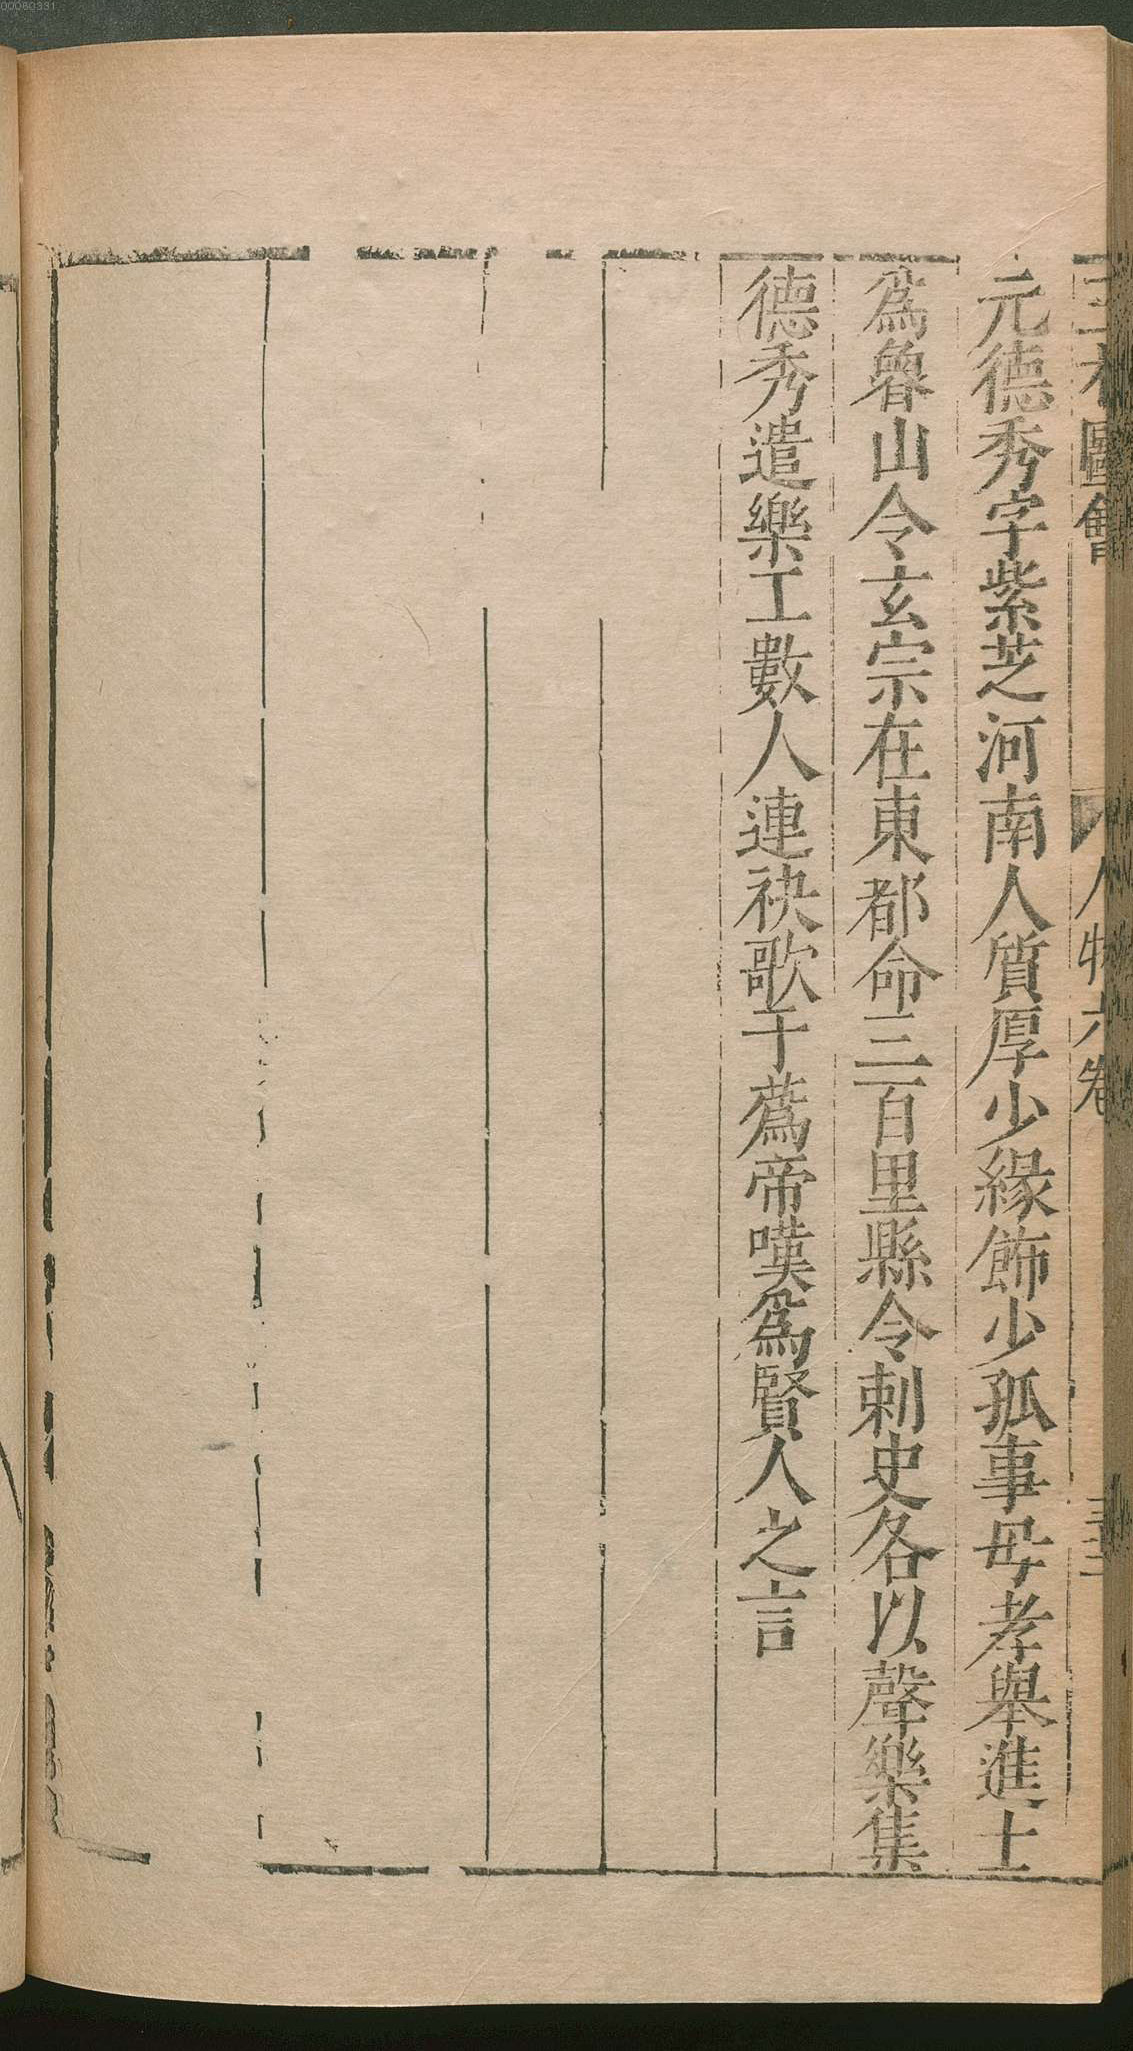 00060331
三才圖會 人物六卷 三十二
元德秀字紫芝河南人質厚少緣飾少孤事母孝舉進士
為魯山令玄宗在東都命三百里縣令刺史各以聲樂集
德秀遣樂工數人連袂歌于蒍帝嘆為賢人之言